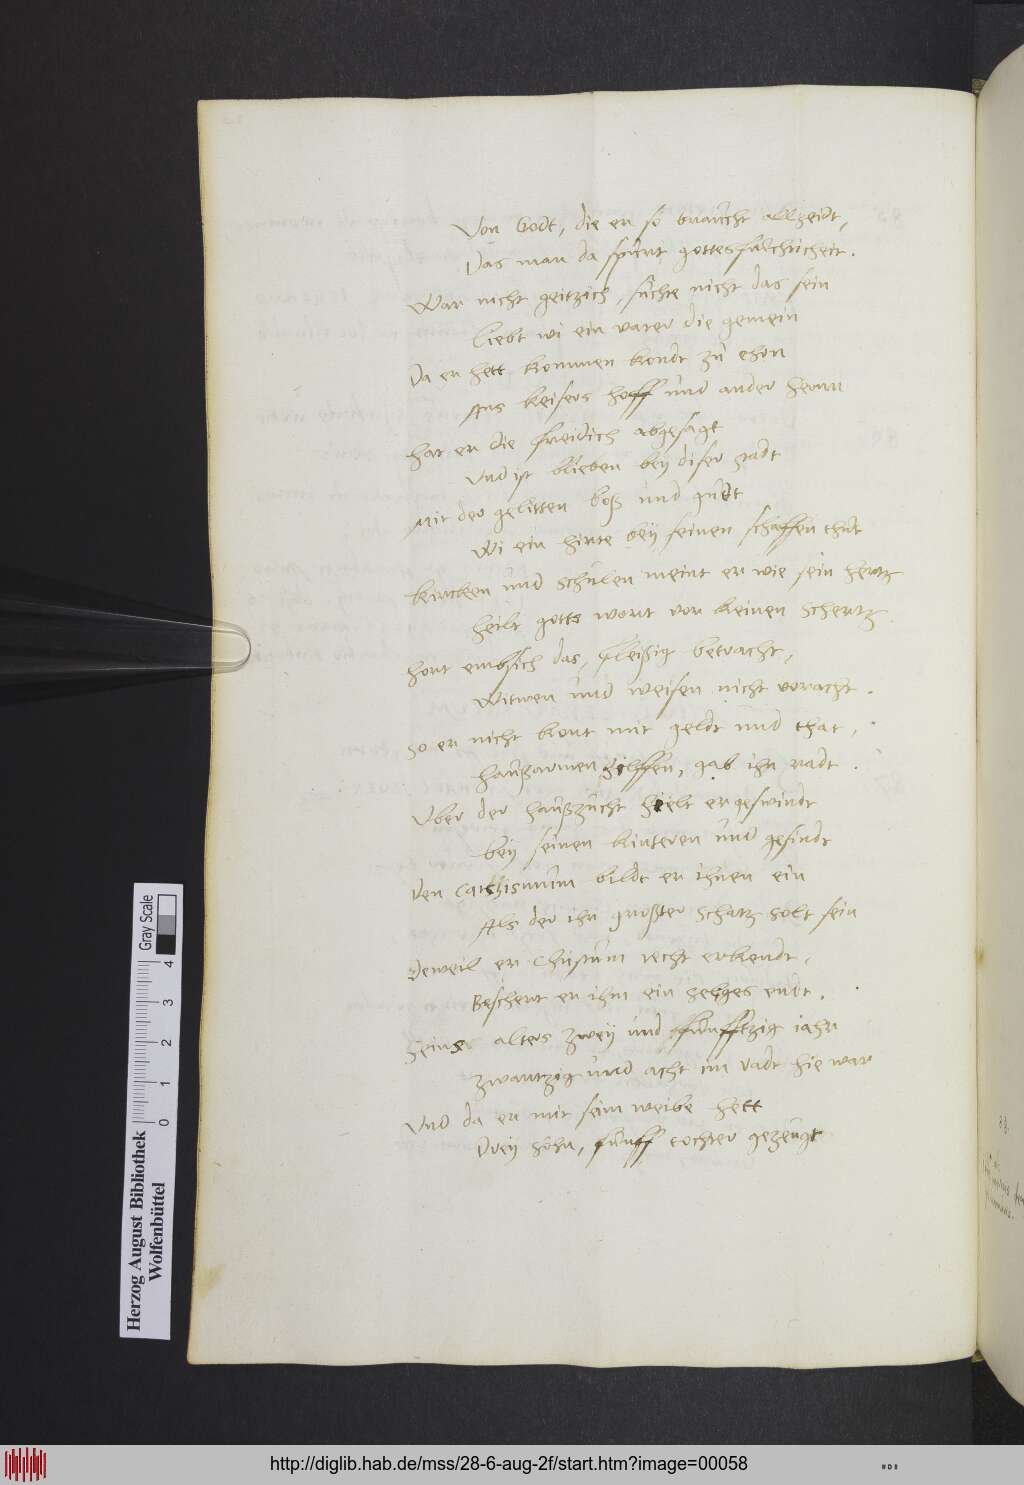 Von Godt, die er so braucht allzeidt,
Das man da spurt gottesfurchticheit.
War nicht geitzich, suchte nicht das sein
Liebt wi ein vater die gemein
Da er hett kommen kondt zu ehrn
Ans keisers hoff und ander hernn
hat er die freidich abgesagt
Und ist blieben bey diser stadt
Mit der gelitten boß und gudt
Wi ein hirte bey seinen schaffen thut
kircken und schulen meint er wie sein hertz
heilt gotts wort vor keinen schertz
hort embsich das, fleißig betracht,
Witwen und weisen nicht voracht.
So er nicht kont mit geldt und that,
haußarmen helffen, gab ihn radt.
Uber der haußzucht hielt er geswindt
bey seinen kinteren und gesindt
Den Cathismum bildt er ihnen ein
Als der ihr großter schatz solt sein
Deweil er Christum recht erkendt,
Beschert er ihm ein selges endt.
Seines alters zwey und funfftzig iahr
zwantzig und acht im radt hie war
Und da er mit seim weibe hett
Drey sohn, funff tochter gezeugt
Herzog August Bibliothek
Wolfenbüttel
0 1 2 3 4
Gray Scale
http://diglib.hab.de/mss/28-6-aug-2f/start.htm?image=00058